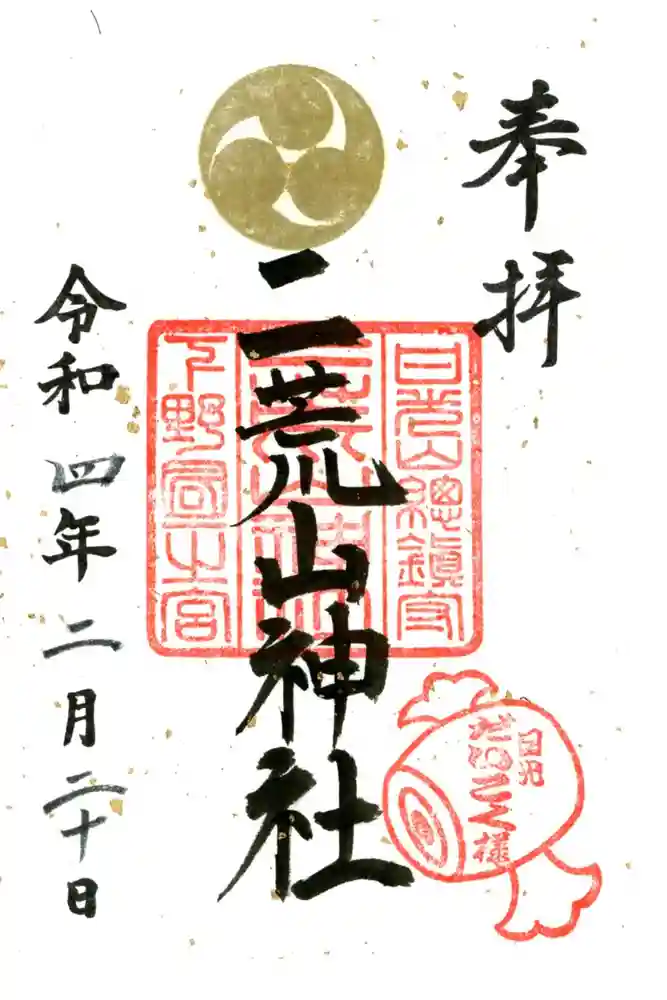 奉拝
日光山總鎮守
二荒山神社
下野國一之宮
二荒山神社
日光
だいこく様
令和四年二月二十日